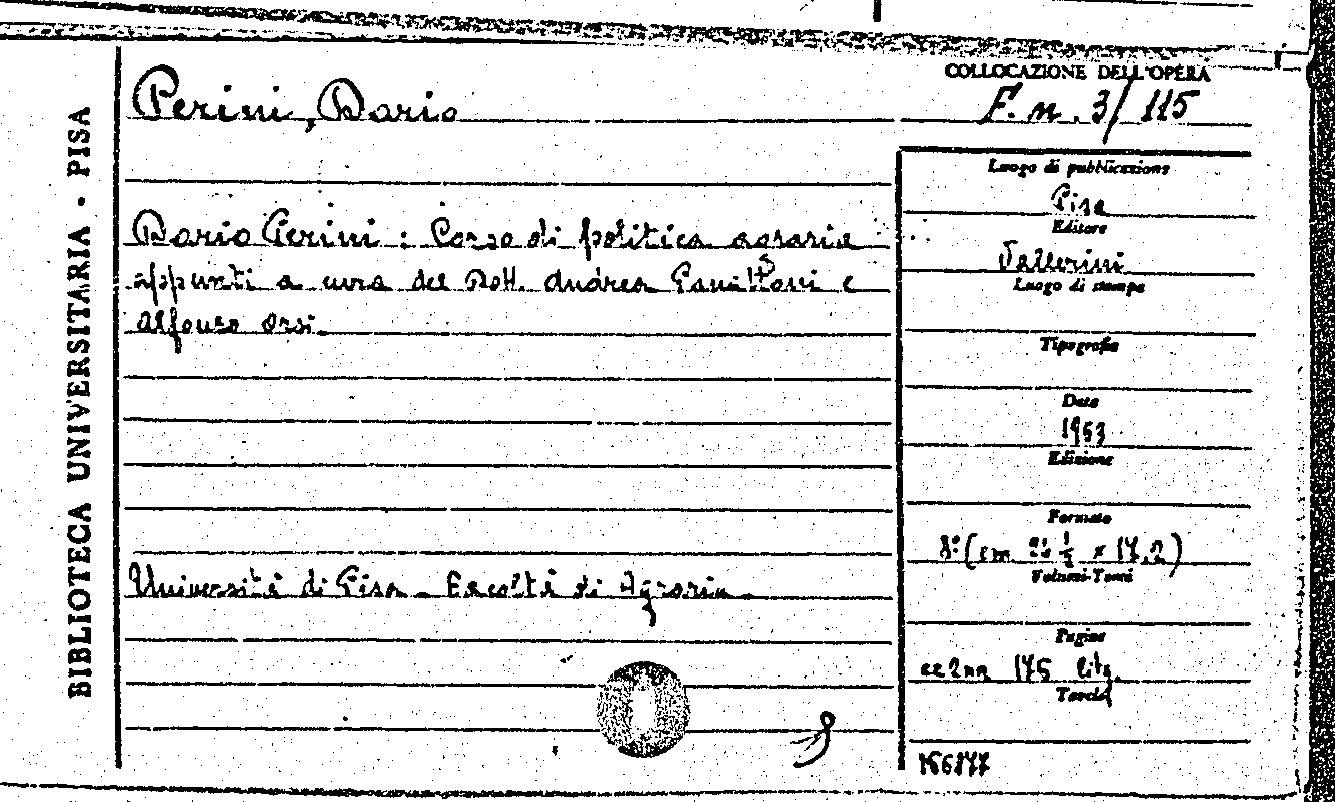 BIBLIOTECA UNIVERSITARIA - PISA
Perini, Dario
COLLOCAZIONE DELL'OPERA
F. n. 3/115
Dario Perini : Corso di politica agraria
appunti a cura del Dott. Andrea e
Alfonso Orsi.
Università di Pisa - Facoltà di Agraria.
Luogo di pubblicazione
Pisa
Editore
Vallerini
Luogo di stampa
Tipografia
Data
1963
Edizione
Formato
8° (cm x 17,2)
Volumi-Tomi
Pagine
cc 2nn 175 lity.
Tavole